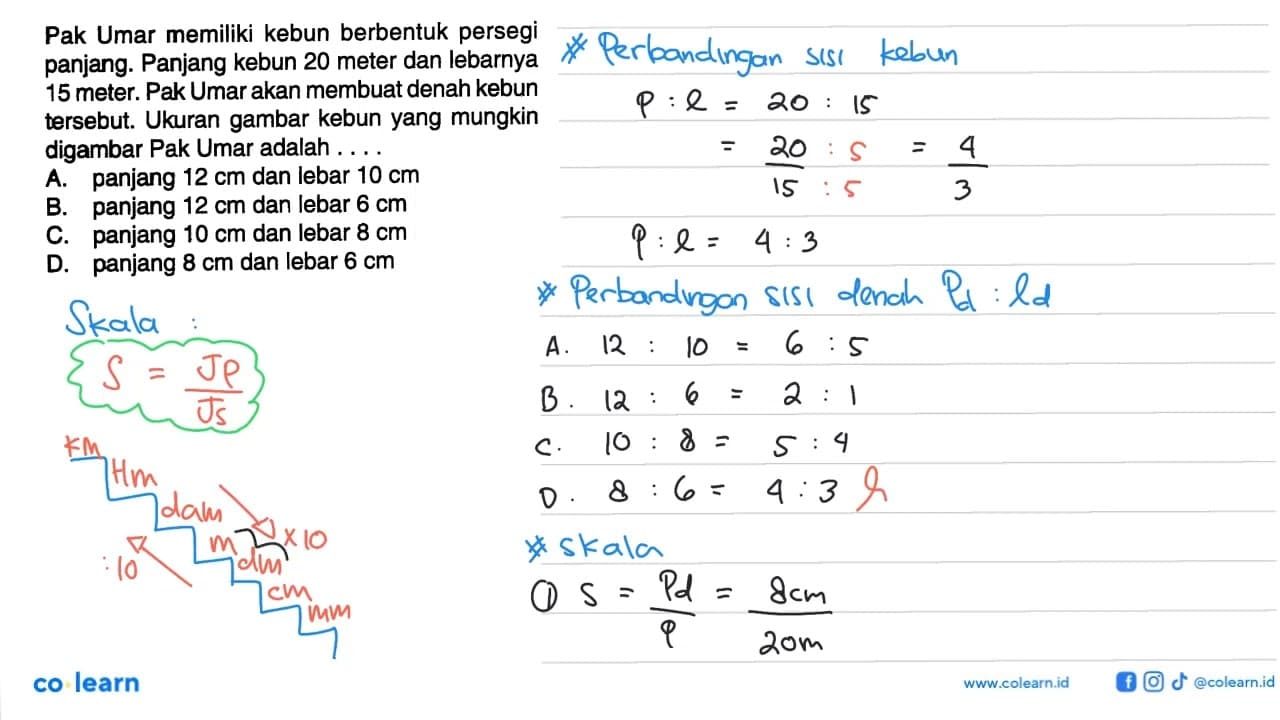 Pak Umar memiliki kebun berbentuk persegi
panjang. Panjang kebun 20 meter dan lebarnya
15 meter. Pak Umar akan membuat denah kebun
tersebut. Ukuran gambar kebun yang mungkin
digambar Pak Umar adalah . . . .
A. panjang 12 cm dan lebar 10 cm
B. panjang 12 cm dan lebar 6 cm
C. panjang 10 cm dan lebar 8 cm
D. panjang 8 cm dan lebar 6 cm
Skala :
S = Jp / Js
KM
Hm
dam
m
dm
cm
mm
x 10
: 10
* Perbandingan sisi kebun
p : l = 20 : 15
= 20 : 5 / 15 : 5 = 4 / 3
p : l = 4 : 3
* Perbandingan sisi denah Pd : ld
A. 12 : 10 = 6 : 5
B. 12 : 6 = 2 : 1
C. 10 : 8 = 5 : 4
D. 8 : 6 = 4 : 3
* skala
① S = Pd / p = 8cm / 20m
co learn
www.colearn.id
@colearn.id